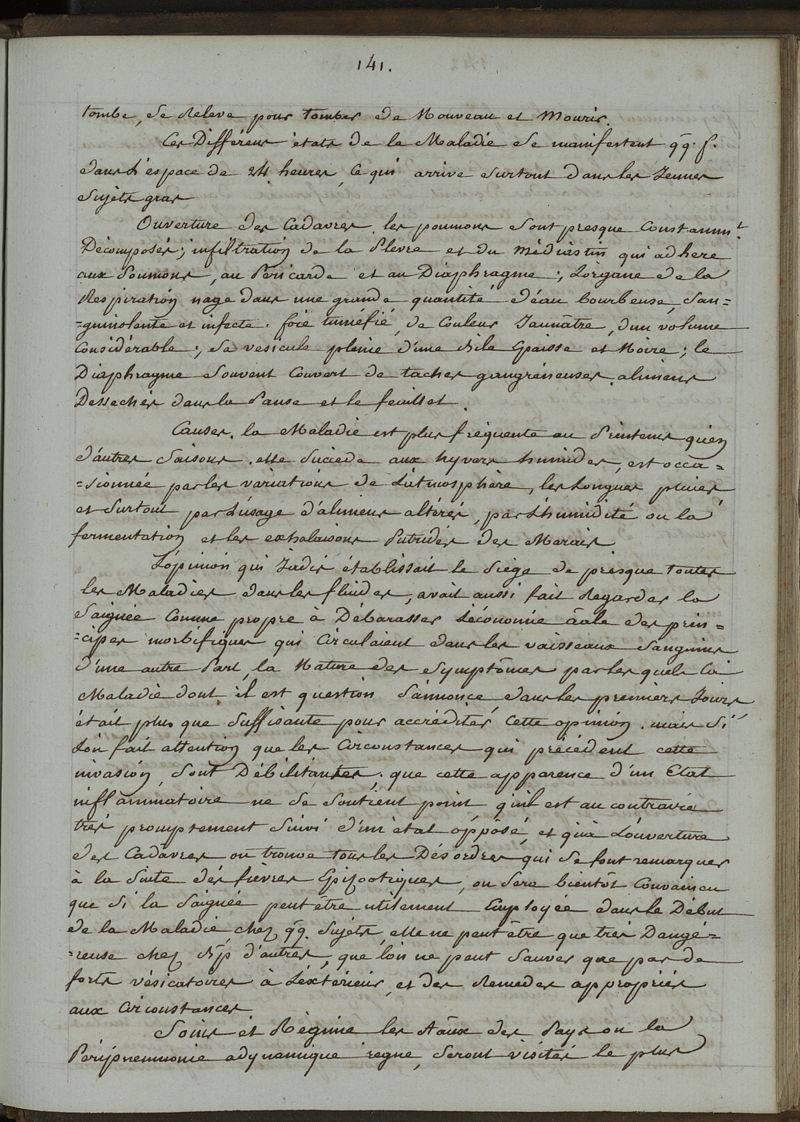 141.
tombe, se releve pour tomber de Nouveau et Mourir.
Ces Différens états de la Maladie se manifestent qq. f.
dans l'espace de 24 heures, Ce qui arrive surtout dans les Jeunes
Sujets gras
Ouverture des Cadavres. les poumons sont presque Constamm.t
Décomposés; infiltration de la Plevre et du Médiastin qui adhere
aux Poumons, au Péricarde et au Diaphragme; Lorgane de la
Respiration nage dans une grande quantité d'eau bourbeuse, San=
=guinolente et infecte. foie tuméfié, de Couleur Jaunâtre, d'un volume
Considérable; Sa vesicule pleine d'une bile Epaisse et Noire; le
Diaphragme Souvent Couvert de taches gangréneuses. alimens
Dessechés dans la Panse et le feuillet.
Causes. la Maladie est plus fréquente au Printems qu'en
d'autres Saisons. elle Succede aux hyvers humides, est occa=
=sionnée par les variations de L'atmosphère, les Longues pluies
et Surtout par L'usage d'alimens altérés, par L'humidité ou la
fermentation et les exhalaisons Putrides des Marais
L'opinion qui Jadis établissait le Siége de presque toutes
les Maladies dans les fluides, avait aussi fait Regarder la
Saignée Comme propre à Débarasser L'économie aale des prin=
=cipes morbifiques qui Circulaient dans les vaisseaux Sanguins
d'une autre Part, la Nature des Symptômes par les quels la
Maladie dont il est question S'annonce dans les premiers Jours
était plus que Suffisante pour accréditer Cette opinion. mais Si
L'on fait attention que les Circonstances qui précédent cette
invasion, Sont Débilitantes, que cette apparence d'un Etat
inflammatoire ne Se Soutient point qu'il est au contraire
tres promptement Suivi d'un état opposé, et qu'à L'ouverture
des Cadavres on trouve tous les Désordres qui Se font remarquer
à la Suite des fievres Epizootiques, on Sera bientôt Convaincu
que Si la Saignée peut être utilement Employée dans le Début
de la Maladie, chez qq. Sujets elle ne peut être que tres Dangé=
=reuse chez d'autres, que l'on ne peut Sauver que par de
forts vésicatoires à L'extérieur, et des Remedes appropriés
aux Circonstances
Soins et Règime les des Pays ou la
Péripneumonie adynamique regne, Seront visités le plus